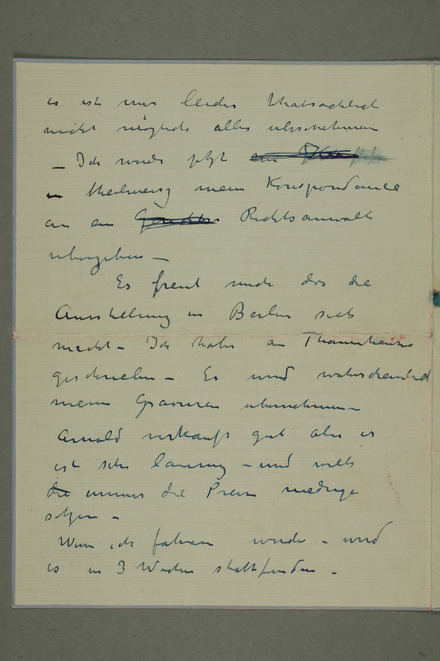 es ist mir leider thatsächlich
nicht möglich alles übernehmen
– Ich werde jetzt ein
theilweise mein Korrespondance
an ein Rechtsanwalt
übergeben –
Es freut mich das die
Ausstellung in Berlin sich
macht – Ich habe an Thannhauser
geschrieben – Er wird wahrscheinlich
meine Gravuren übernehmen –
Arnold verkauft gut aber er
ist sehr – und will
die immer die Preise niedrige
setzen –
Wenn ich fahren werde – wird
es in 3 Wochen stattfinden –